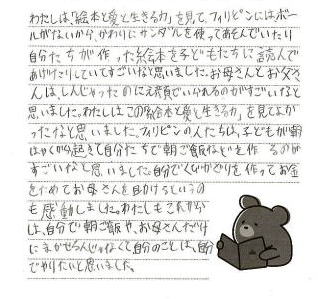 わたしは「絵本と愛と生きる力」を見て、フィリピンにはボー
ルがないから、かわりにサンダルを使ってあそんでいたり
自分たちが作った絵本を子どもたちに読んで
あげたりしていてすごいなと思いました。お母さんとお父さ
んは、しんじゃったのにえ顔でいられるのがすごいなと
思いました。わたしはこの「絵本と愛と生きる力」を見てよか
ったなと思いました。フィリピンの人たちは、子どもが朝
はやくから起きて自分たちで朝ご飯などを作るのが
すごいなと思いました。自分でくふうを作ってお金
をためてお母さんを助けるというの
も感動しました。わたしもこれから
は、自分で朝ご飯や、お母さんだけ
にまかせるんじゃなくて、自分のことは、自分
でやりたいと思いました。